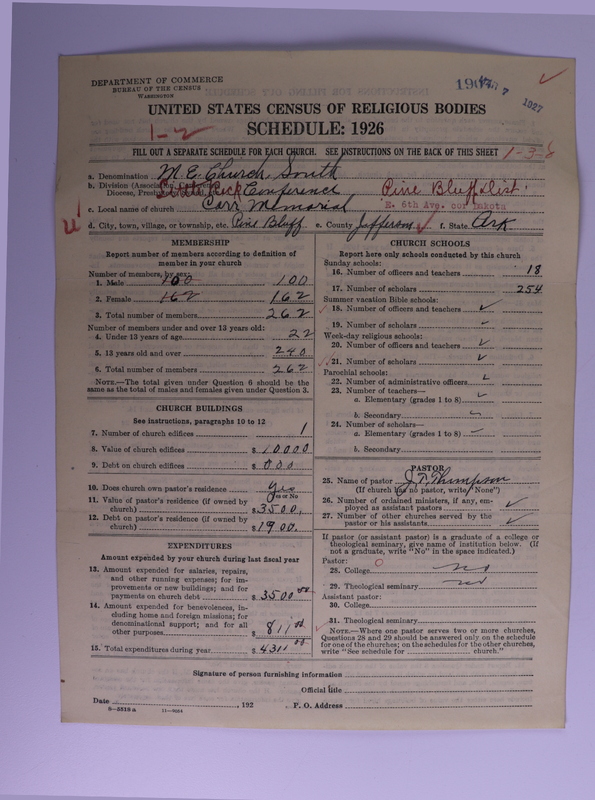 DEPARTMENT OF COMMERCE
BUREAU OF THE CENSUS
WASHINGTON
1927
UNITED STATES CENSUS OF RELIGIOUS BODIES
1-2
SCHEDULE: 1926
FILL OUT A SEPARATE SCHEDULE FOR EACH CHURCH. SEE INSTRUCTIONS ON THE BACK OF THIS SHEET
1-3-8
a. Denomination M.E. Church South
b. Division (Association, Conference, Diocese, Presbytery, Little Rock Conference Pine Bluff Dist.
c. Local name of church Carr Memorial E. 6th Ave. cor Dakota
d. City, town, village, or township, etc. Pine Bluff e. County Jefferson f. State Ark
MEMBERSHIP
Report number of members according to definition of member in your church
Number of members, by sex:
1. Male 100 100
2. Female 162 162
3. Total number of members 262
Number of members under and over 13 years old:
4. Under 13 years of age 22
5. 13 years old and over 240
6. Total number of members 262
NOTE.—The total given under Question 6 should be the same as the total of males and females given under Question 3.
CHURCH BUILDINGS
See instructions, paragraphs 10 to 12
7. Number of church edifices 1
8. Value of church edifices $ 10000
9. Debt on church edifices $ 000
10. Does church own pastor's residence? yes
Yes or No
11. Value of pastor's residence (if owned by church) $ 3500.
12. Debt on pastor's residence (if owned by church) $ 1900.
EXPENDITURES
Amount expended by your church during last fiscal year
13. Amount expended for salaries, repairs, and other running expenses; for improvements or new buildings; and for payments on church debt $ 3500.00
14. Amount expended for benevolences, including home and foreign missions; for denominational support; and for all other purposes $ 811.00
15. Total expenditures during year $ 4311.00
CHURCH SCHOOLS
Report here only schools conducted by this church
Sunday schools:
16. Number of officers and teachers 18
17. Number of scholars 254
Summer vacation Bible schools:
18. Number of officers and teachers
19. Number of scholars
Week-day religious schools:
20. Number of officers and teachers
21. Number of scholars
Parochial schools:
22. Number of administrative officers
23. Number of teachers—
a. Elementary (grades 1 to 8)
b. Secondary
24. Number of scholars—
a. Elementary (grades 1 to 8)
b. Secondary
PASTOR
25. Name of pastor J. D. Thompson
(If church has no pastor, write "None")
26. Number of ordained ministers, if any, employed as assistant pastors
27. Number of other churches served by the pastor or his assistants
If pastor (or assistant pastor) is a graduate of a college or theological seminary, give name of institution below. (If not a graduate, write "No" in the space indicated.)
Pastor:
28. College no
29. Theological seminary no
Assistant pastor:
30. College
31. Theological seminary
NOTE.—Where one pastor serves two or more churches, Questions 28 and 29 should be answered only on the schedule for one of the churches; on the schedules for the other churches, write "See schedule for church."
Signature of person furnishing information
Official title
Date , 192 . P. O. Address